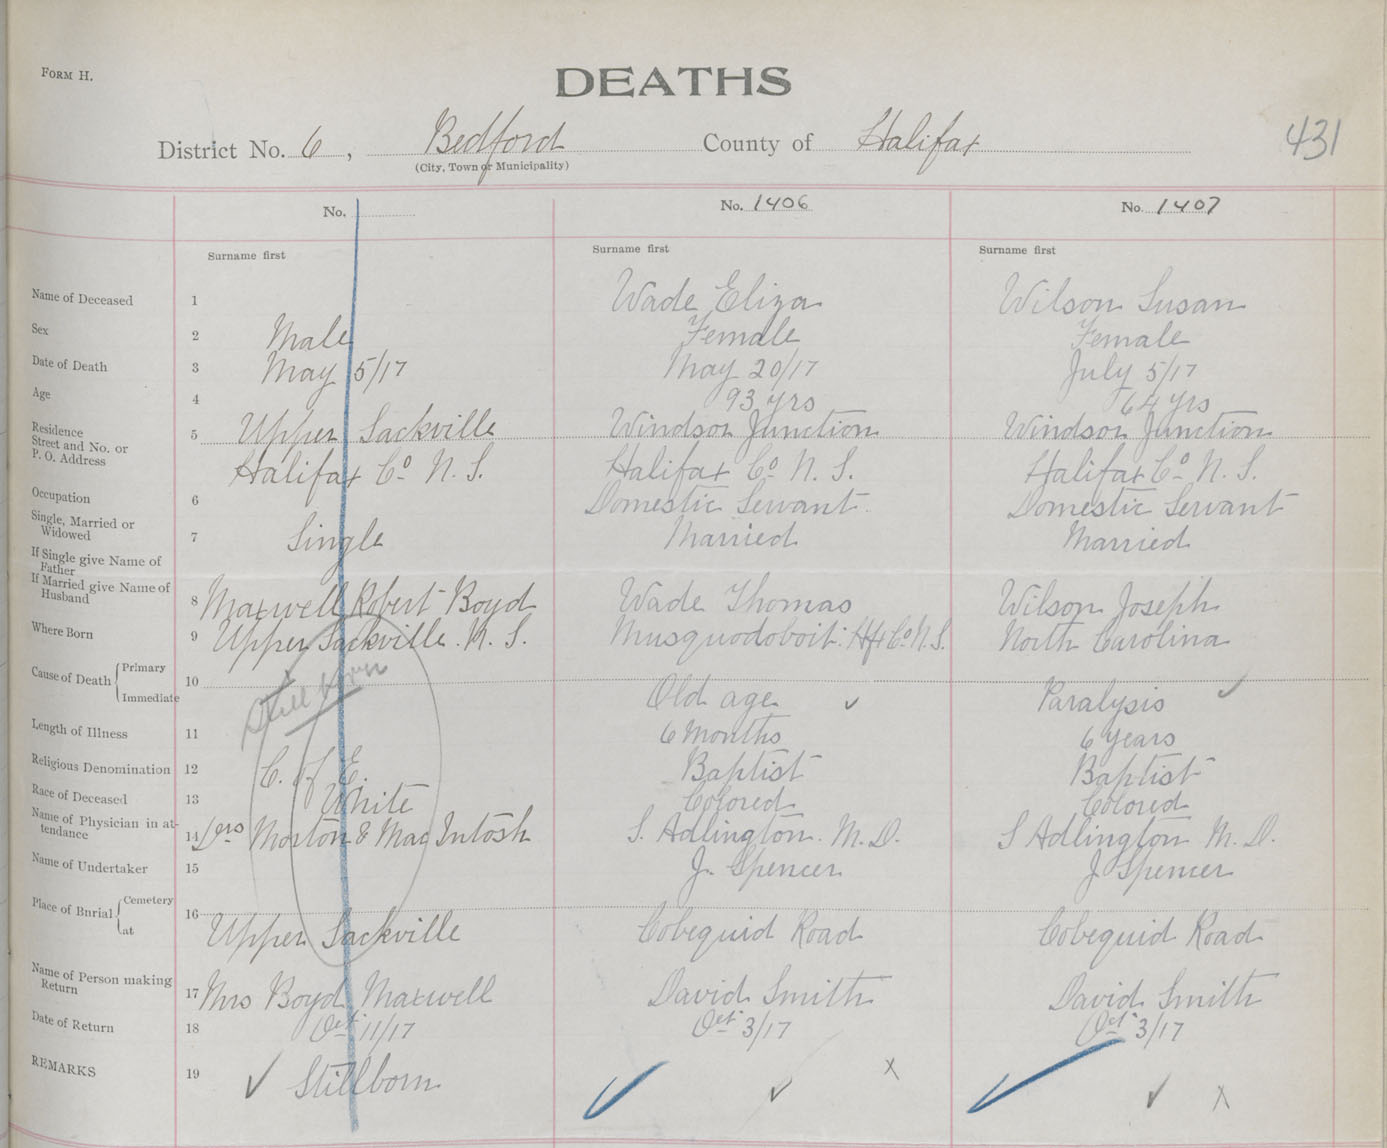 FORM H.
DEATHS
District No. 6, Bedford County of Halifax 431
(City, Town or Municipality)
No. No. 1406 No. 1407
Surname first Surname first Surname first
Name of Deceased 1 Wade Eliza Wilson Susan
Sex 2 Male Female Female
Date of Death 3 May 5/17 May 20/17 July 5/17
Age 4 93 yrs 64 yrs
Residence
Street and No. or 5 Upper Sackville Windsor Junction Windsor Junction
P. O. Address Halifax Co N. S. Halifax Co N. S. Halifax Co N. S.
Occupation 6 Domestic Servant. Domestic Servant
Single, Married or
Widowed 7 Single Married Married
If Single give Name of
Father
If Married give Name of
Husband 8 Maxwell Robert Boyd Wade Thomas Wilson Joseph
Where Born 9 Upper Sackville. N. S. Musquodoboit. Hfx Co N. S. North Carolina
Cause of Death Primary 10 Still born
Immediate Old age ✓ Paralysis ✓
Length of Illness 11 6 Months 6 years
Religious Denomination 12 C. of E. Baptist Baptist
Race of Deceased 13 White Colored Colored
Name of Physician in at-
tendance 14 Drs Morton & MacIntosh S. Adlington. M. D. S Adlington M. D.
Name of Undertaker 15 J. Spencer J Spencer
Place of Burial Cemetery 16
at Upper Sackville Cobequid Road Cobequid Road
Name of Person making
Return 17 Mrs Boyd Maxwell David Smith David Smith
Date of Return 18 Oct 11/17 Oct 3/17 Oct 3/17
REMARKS 19 ✓ Stillborn ✓ ✓ X ✓ ✓ X